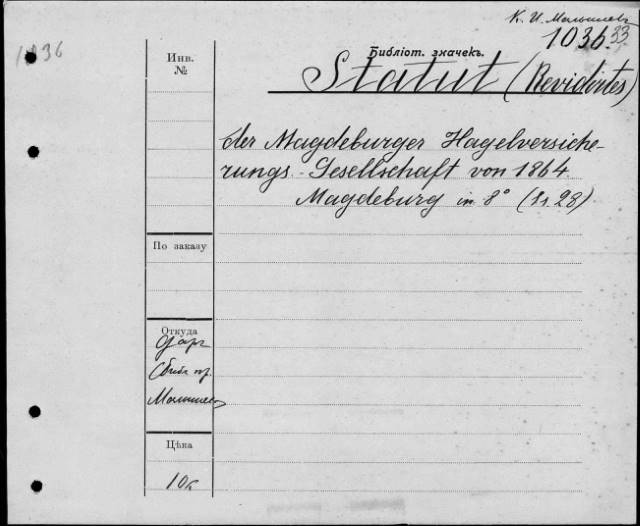 К. И. Малышев
1036 33
1036
Библіот. значекъ.
Statut (Revidirtes)
der Magdeburger Hagelversiche-
rungs-Gesellschaft von 1864.
Magdeburg in 8° (Ss. 28)
Инв.
№
По заказу
Откуда
Даръ
пр.
Малышева
Цѣна
10к